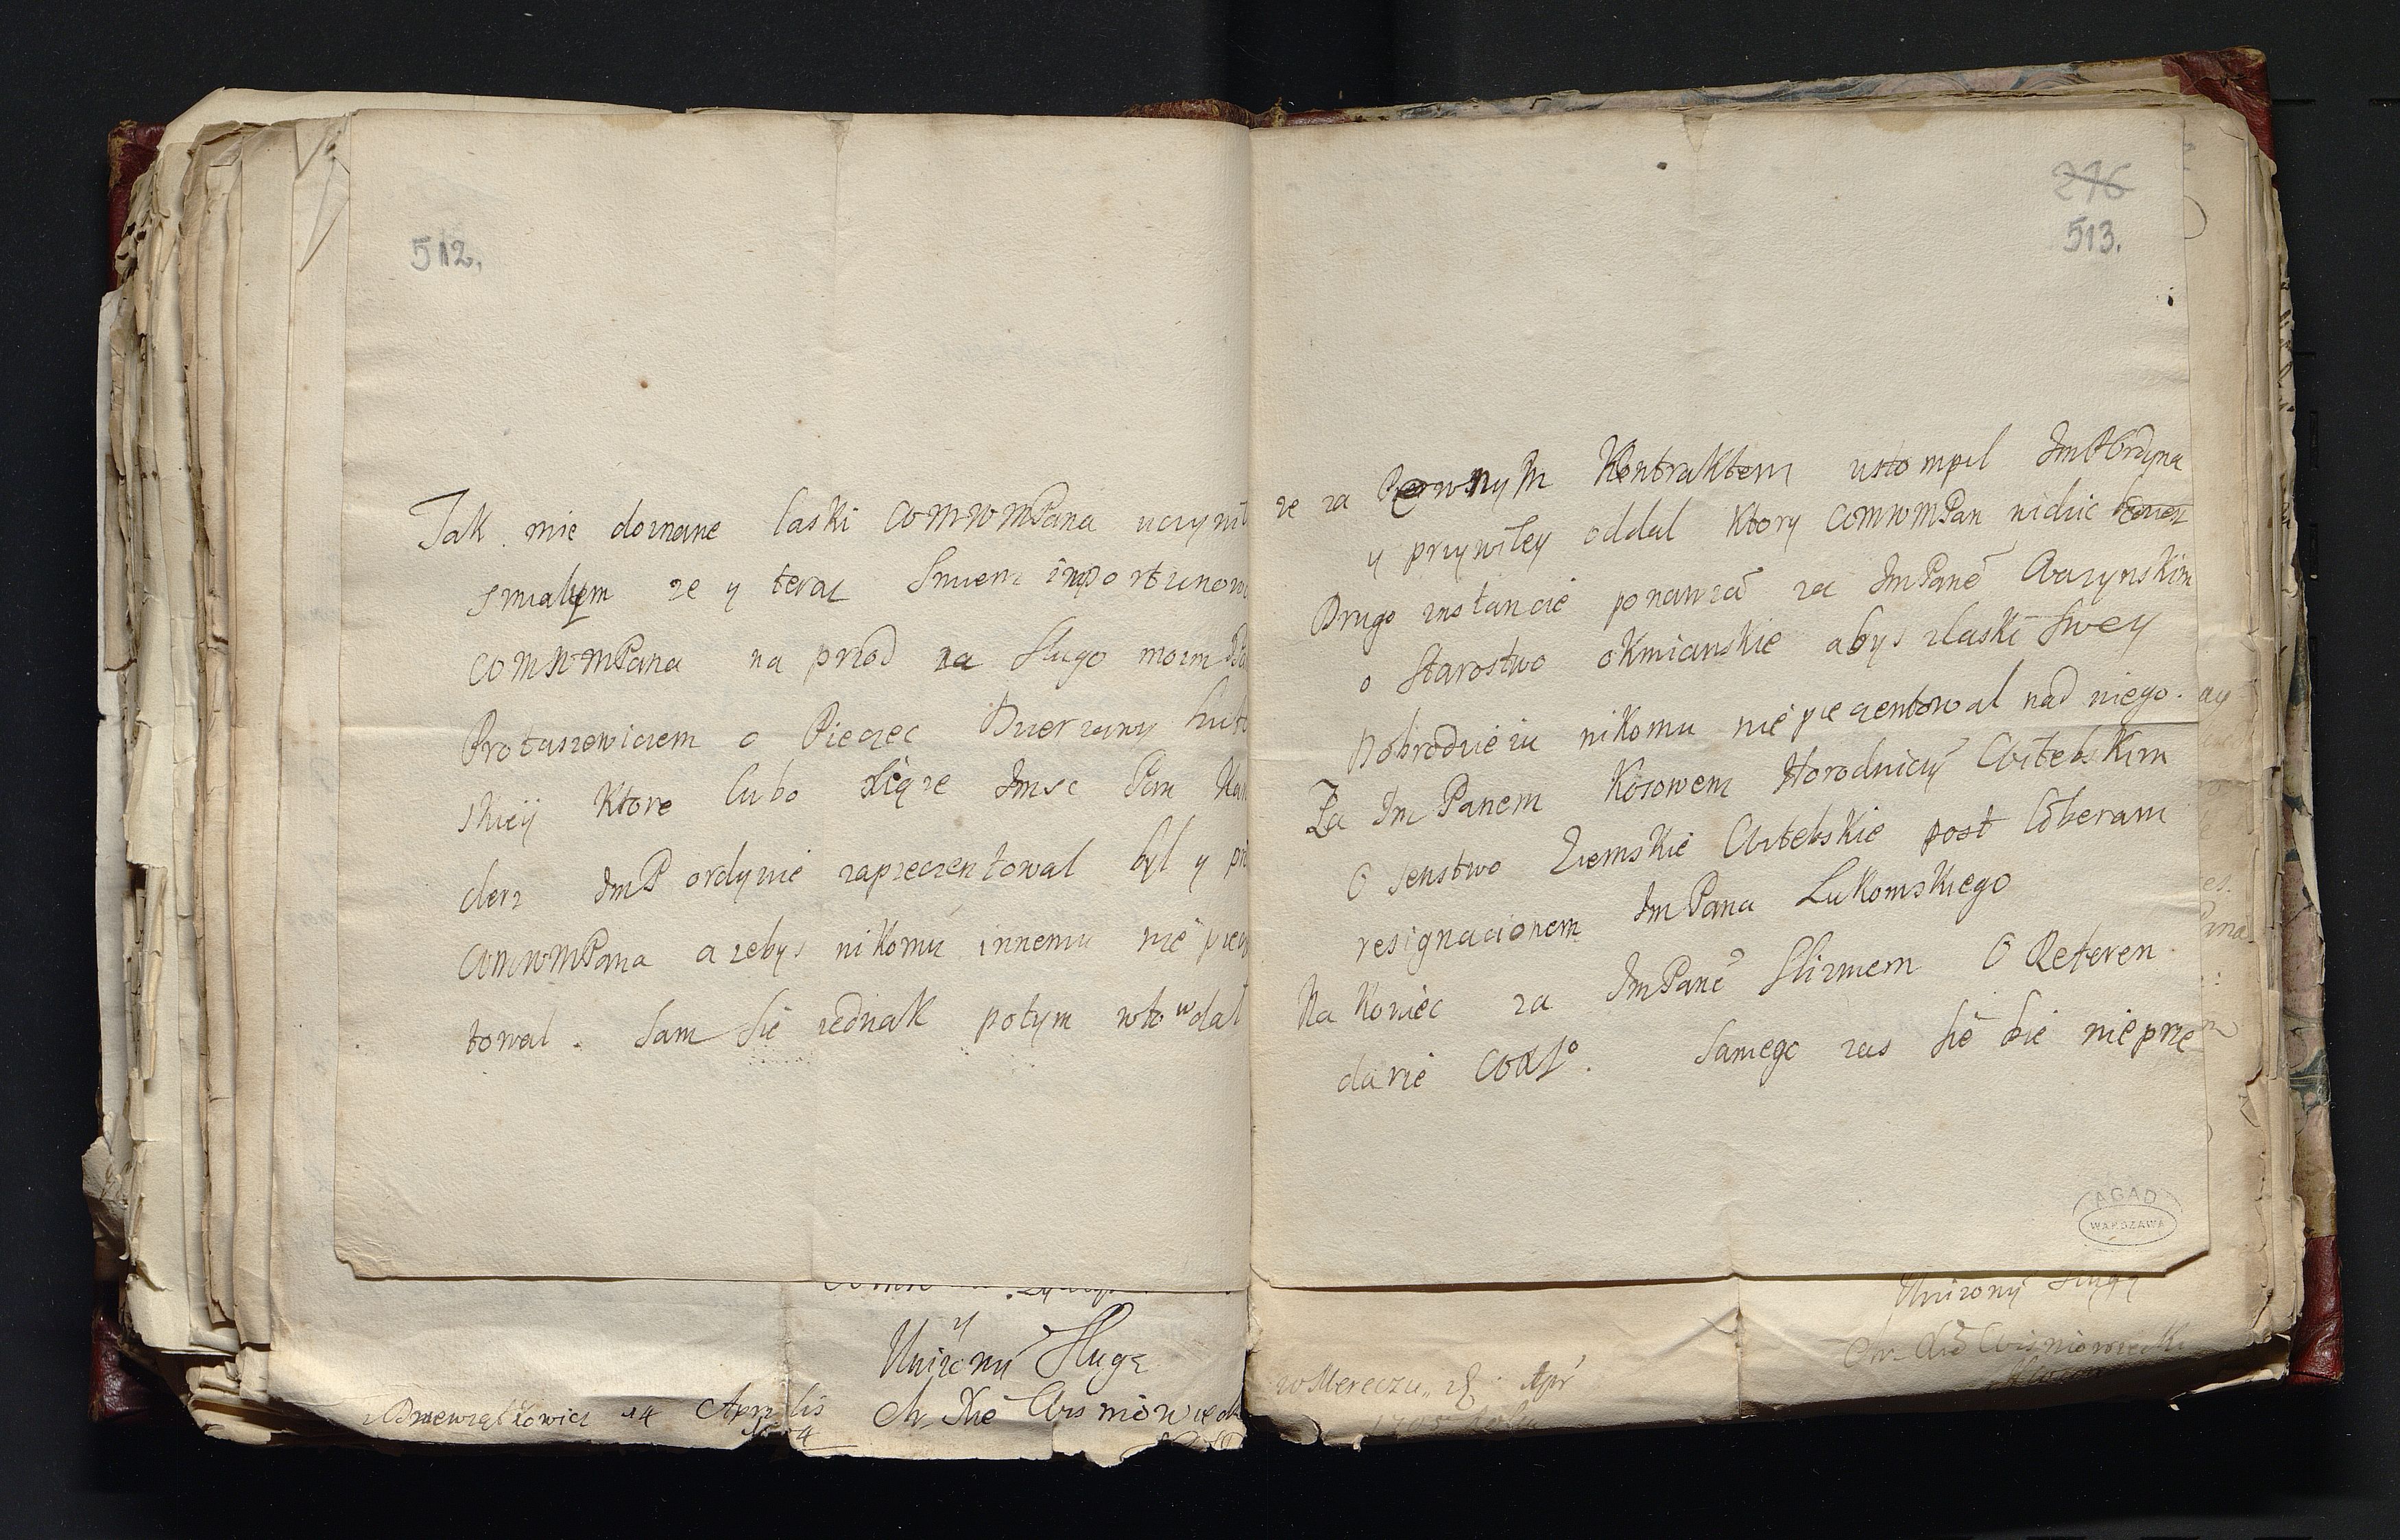 512.
Tak mie doznane laski WMWMPana uczynil
smialym ze y teraz smiem importunowa
WMWMPana na przod za Slugo moim
Protaszewiczem o Pieczec Dzierzawy
skiey Ktore lubo Xiąze Jmsc Pan Kan
clerz JmP ordynie zapreczentowal byl y pr
WMWMPana a zebys nikomu innemu nie prez
towal. Sam Sie iednak potym w to wdal
Unizony Sluga
14 Aprilis
276
513.
ze za Pewnym Kontraktem ustompil JmP Ordyna
y przywiley oddal Ktory WMWMPan nidzie
Drugo instancie ponawiac za JmPane Wazynskim
o Starostwo oKmianskie abys z laski Swey
Dobrodzieiu nikomu nie prezentowal nad niego.
Za Jm Panem Kosowem Horodniczy Witebskim
O Senstwo Ziemskie Witebskie post liberam
resignacionem Jm Pana Lukomskiego
Na Koniec za JmPane Slizniem O Referen
darie WXL°. Samego zas Sie bie nie prze
AGAD
WARSZAWA
Unizony Sluga
w Mereczu 28 Apr